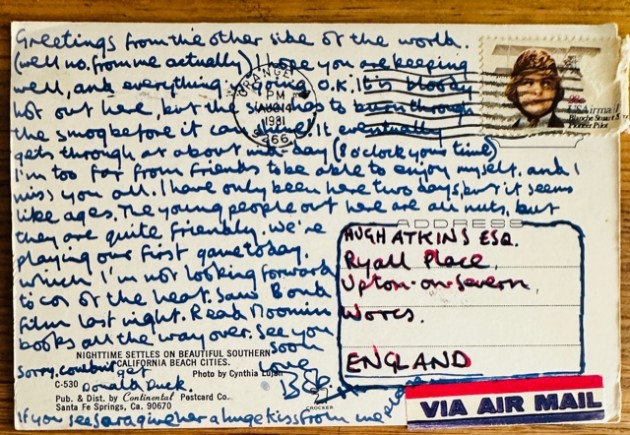 Greetings from the other side of the world.
(well no, from me actually) I hope you are keeping
well, and everything is going O.K. It is bloody
hot out here, but the sun has to burn through
the smog before it can It eventually
gets through at about mid-day (8 o'clock your time)
I'm too far from friends to be able to enjoy myself, and I
miss you all. I have only been here two days, but it seems
like ages. The young people out here are all nuts, but
they are quite friendly. We're
playing our first game today.
which I'm not looking forward
to cos of the heat. Saw Bond
film last night. Read Moomin
books all the way over. See you
soon
NIGHTTIME SETTLES ON BEAUTIFUL SOUTHERN
CALIFORNIA BEACH CITIES.
Photo by Cynthia Lujan
Sorry, couldn't get
Donald Duck.
love
C-530
Pub. & Dist. by Continental Postcard Co.
Santa Fe Springs, Ca. 90670
CROCKER
If you see Sara give her a huge kiss from me please
ORANGE
PM
AUG 14
1981
USAirmail
Blanche Stuart Scott
Pioneer Pilot
ADDRESS
HUGH ATKINS ESQ.
Ryall Place,
Upton-on-Severn,
Worcs.
ENGLAND
VIA AIR MAIL